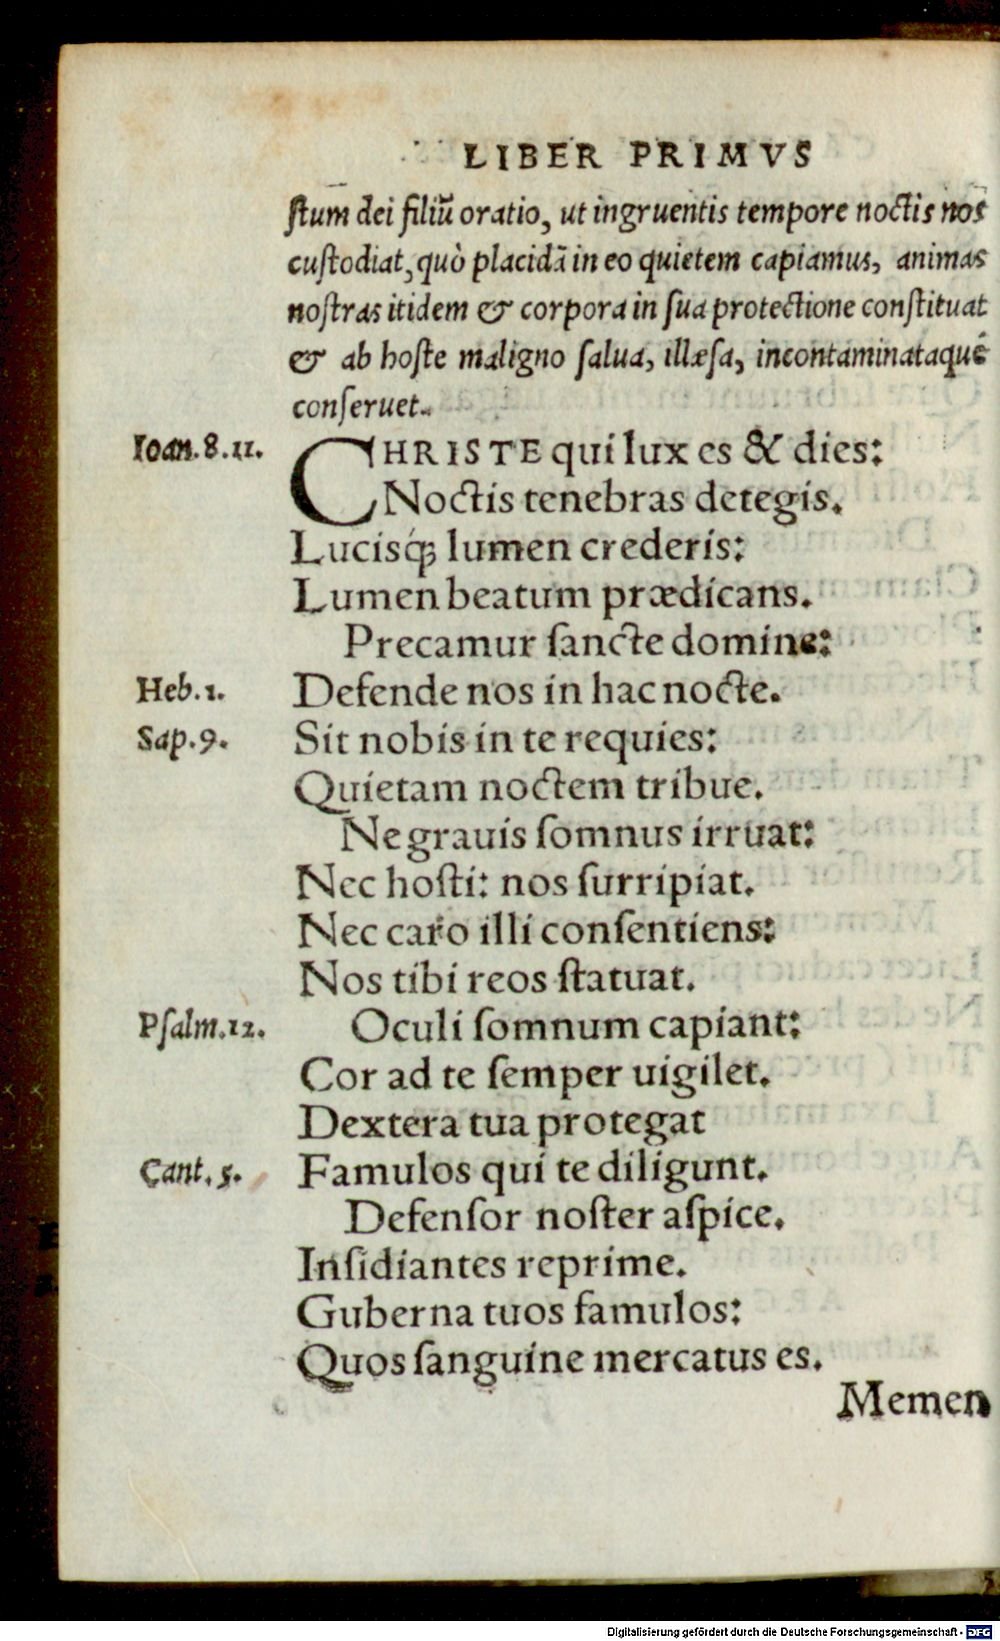 LIBER PRIMVS
ſtum dei filiū oratio, ut ingruentis tempore noctis nos
cuſtodiat, quò placidā in eo quietem capiamus, animas
noſtras itidem & corpora in ſua protectione conſtituat
& ab hoſte maligno ſalua, illæſa, incontaminataqué
conſeruet.
Ioan.8.12. CHRISTE qui lux es & dies:
Noctis tenebras detegis.
Lucisq́; lumen crederis:
Lumen beatum prædicans.
Precamur ſancte domine:
Heb.1. Defende nos in hac nocte.
Sap.9. Sit nobis in te requies:
Quietam noctem tribue.
Ne grauis ſomnus irruat:
Nec hoſti: nos ſurripiat.
Nec caro illi conſentiens:
Nos tibi reos ſtatuat.
Pſalm.12. Oculi ſomnum capiant:
Cor ad te ſemper uigilet.
Dextera tua protegat
Cant.5. Famulos qui te diligunt.
Defenſor noſter aſpice.
Inſidiantes reprime.
Guberna tuos famulos:
Quos ſanguine mercatus es.
Memen
Digitalisierung gefördert durch die Deutsche Forschungsgemeinschaft - DFG